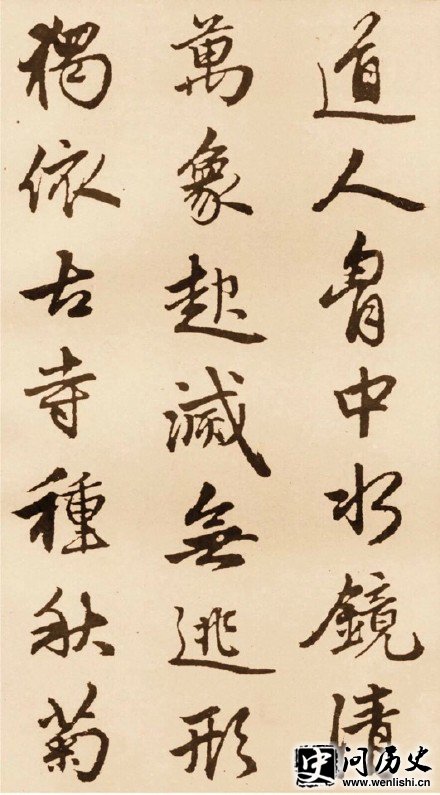 道人胷中水鏡清
萬象起滅無逃形
獨依古寺種秋菊
史问历史
www.wenlishi.cn